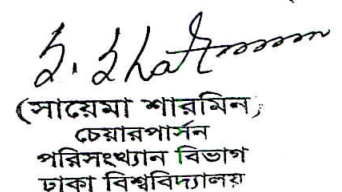 (সায়েমা শারমিন)
চেয়ারপার্সন
পরিসংখ্যান বিভাগ
ঢাকা বিশ্ববিদ্যালয়